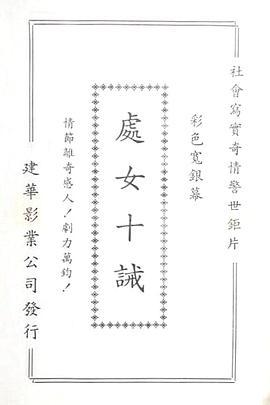 社會寫實奇情警世鉅片
彩色寬銀幕
處女十誡
情節離奇感人！劇力萬鈞！
建華影業公司發行